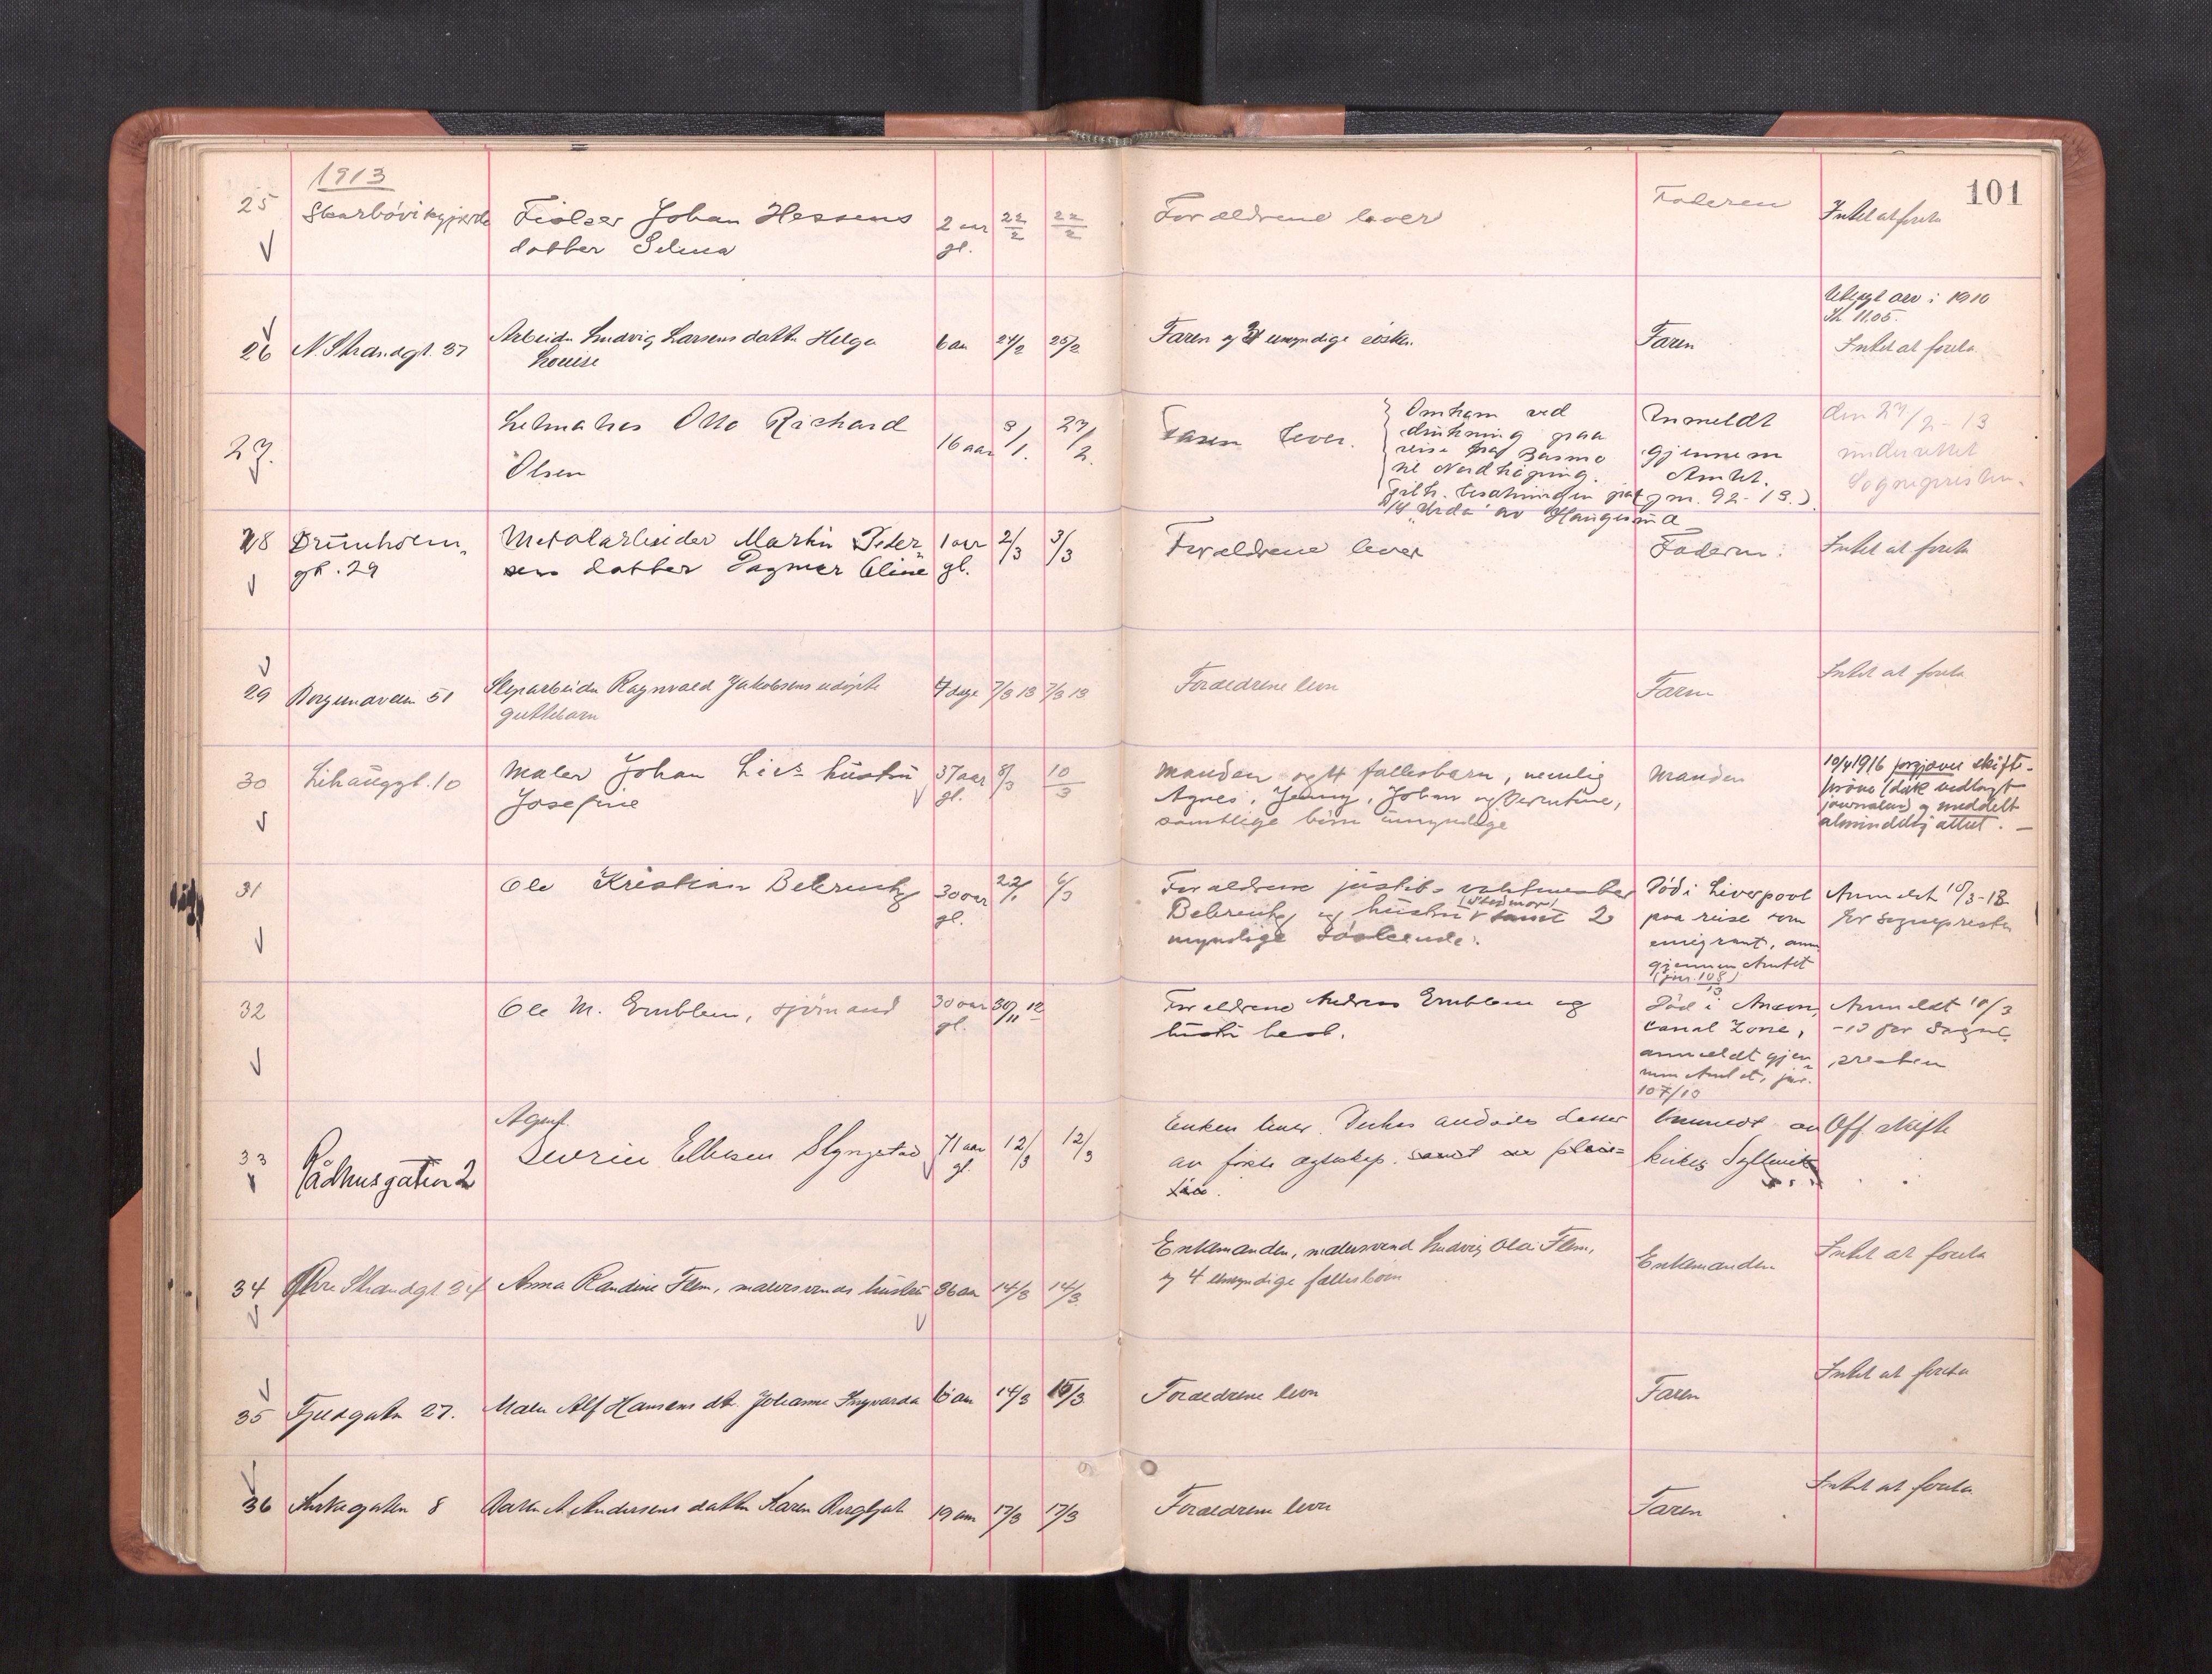 1913
101
25
Skarbövikgjerde
Fisker Johan Hessens
datter Selma
2 aar
gl.
22/2
22/2
Forældrene lever
Faderen
Intet at foreta
26
N. Strandgt. 37
Arbeider Ludvig Larsens datter Helga
Louise
6 aar
24/2
25/2
Faren og umyndige søsken.
Faren
Utlagt arv i 1910
Intet at foreta.
27.
Letmatros Otto Richard
Olsen
16 aar
8/1.
27/2.
Faren lever.
Omkom ved
drukning paa
reise fra
til Nordköping.
av Haugesund
Anmeldt
gjennem
Amtet.
jnr. 92-13.)
den 27/2-13
underrettet
Sognepresten.
28
Brunholm
gt. 29
Metalarbeider Martin Peder-
sens datter Dagmar Oline
1 aar
gl.
2/3
3/3
Forældrene lever
Faderen.
Intet at foreta
29
Borgundveien 51
Sliparbeider Ragnvald Jakobsens udöpte
guttebarn
7 dage
7/3 13
7/3 13
Forældrene lever
Faren
Intet at foreta
30
Lihauggt. 10
Maler Johan Lies hustru
Josefine
37 aar
gl.
8/3
10/3
Manden og 4 fællesbarn, nemlig
Agnes, Jenny, Johan og
samtlige börn umyndige
Manden
10/4 1916 forgjæves skifte-
pröve (dok vedlagt
journalen) og meddelt
almindelig attest. —
31
Ole Kristian Behrentz
30 aar
gl.
22/1
6/3
Forældrene justits-vaktmester
Behrentz og hustru (stedmor) samt 2
myndige söskende.
Död i Liverpool
paa reise som
emigrant, anm.
gjennem Amtet
(jnr. 108/13)
Anmeldt 10/3-13
for Sognepresten
32
Ole M. Emblem, sjömand
30 aar
gl.
30/11 12
Forældrene Andreas Emblem og
hustru
Död i Ancon,
Canal Zone,
anmeldt gjen-
nem Amtet, jnr.
107/13
Anmeldt 10/3
-13 for Sogne-
presten
33
Rådhusgaten 2
Agent
Severin Ellesen Slyngstad
71 aar
gl.
12/3
12/3
Enken lever. Desuten
av förste ægteskap. samt
Off. skifte
34
Øvre Strandgt. 34
Anna Randine Flem, malersvends hustru
36 aar
14/3
14/3
Enkemanden, malersvend Ludvig Olai Flem,
og 4 umyndige fællesbörn
Enkemanden
Intet at foreta
35
Fjeldgaten 27.
Maler Alf Hansens dtr. Johanne Ingvarda
6 aar
14/3
15/3
Forældrene lever
Faren
Intet at foreta
36
Kirkegaten 8
Baker A. Andersens datter Karen Bergljot
19 aar
17/3
17/3
Forældrene lever
Faren
Intet at foreta